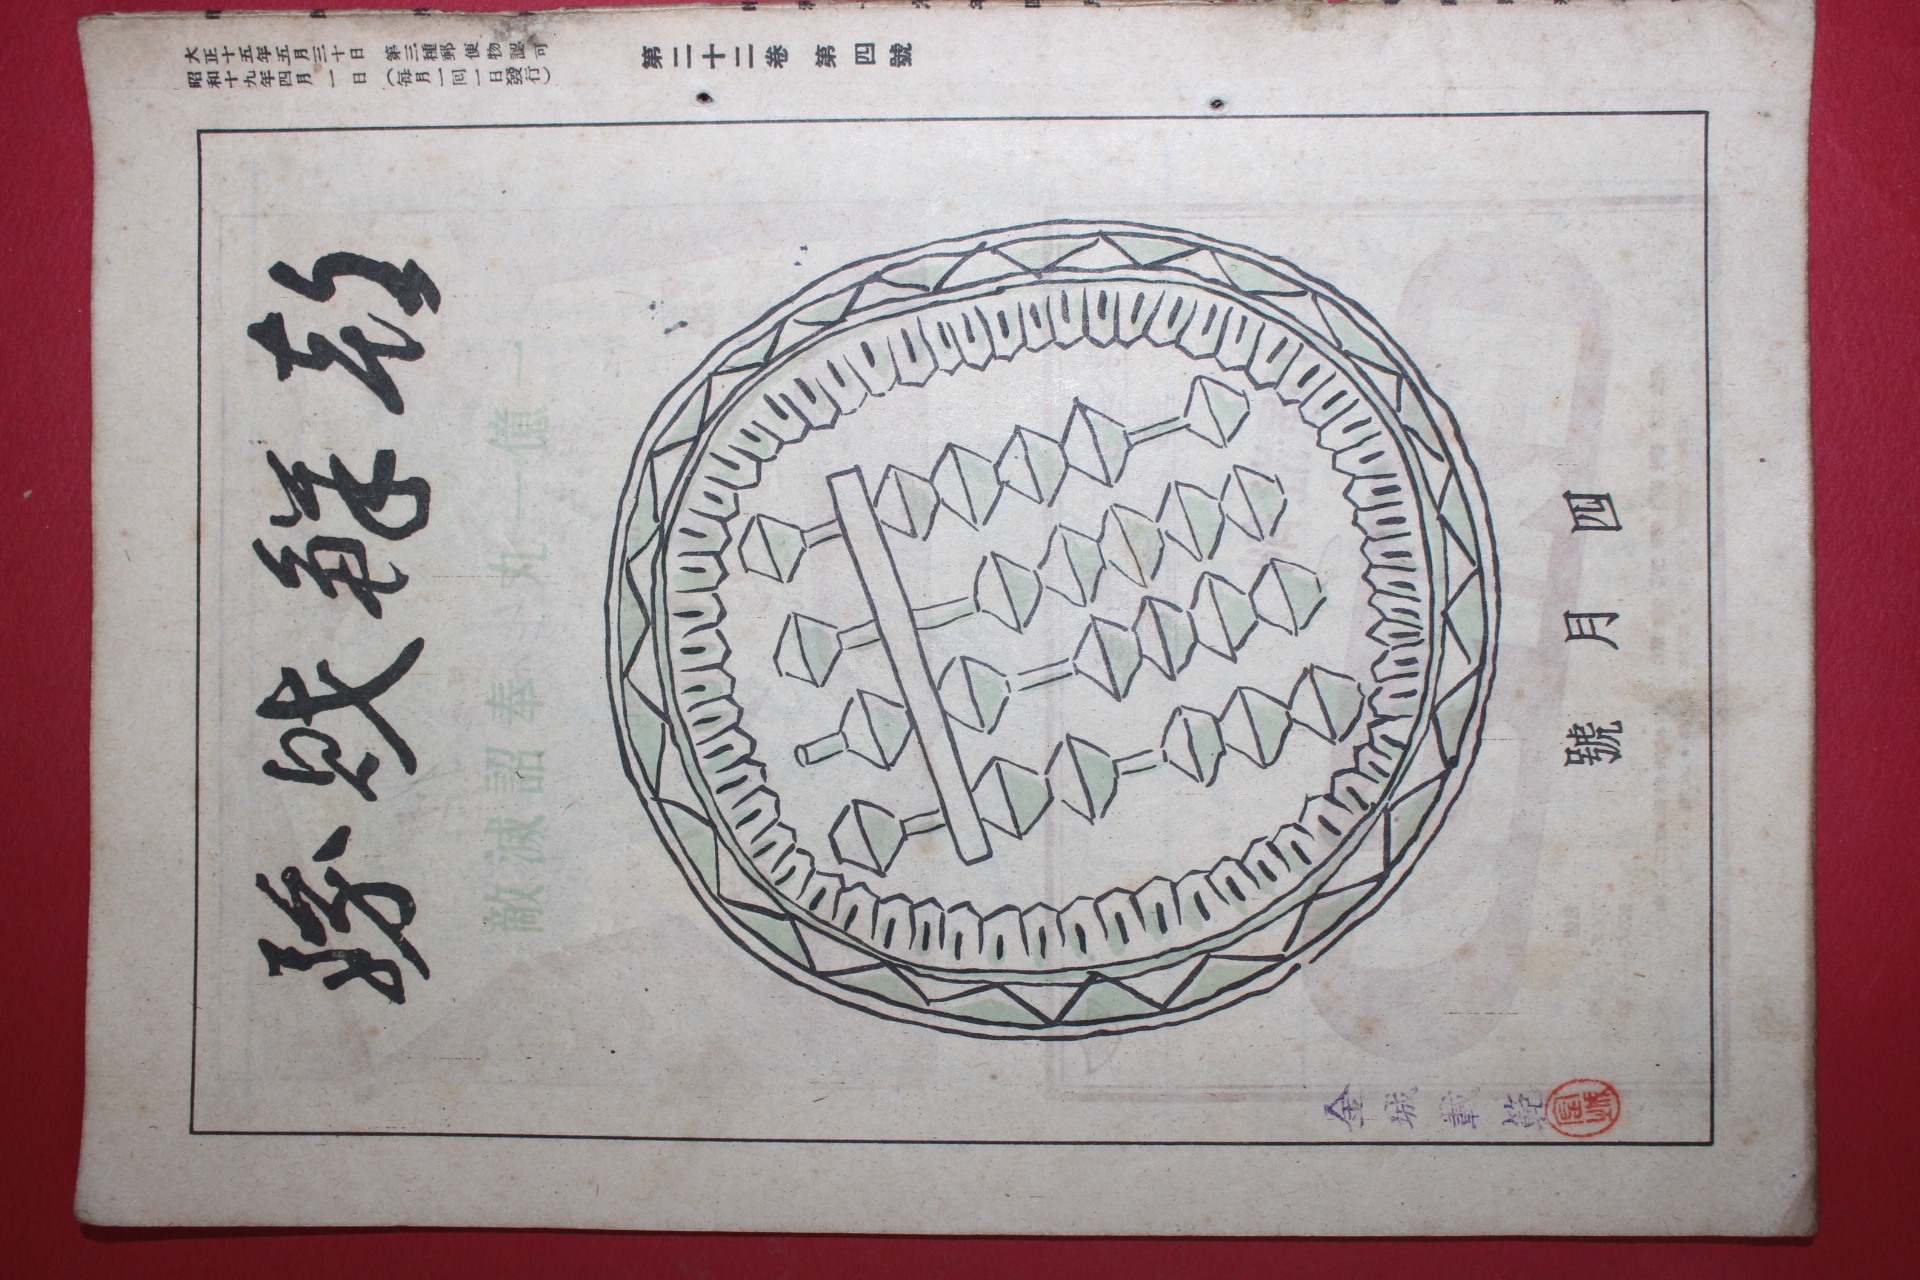 大正十五年五月三十日 第三種郵便物認可
昭和十九年四月一日 (每月一回一日發行)
第二十二卷 第四號
朝鮮財務
一億一丸 奉詔滅敵
四月號
金城載範